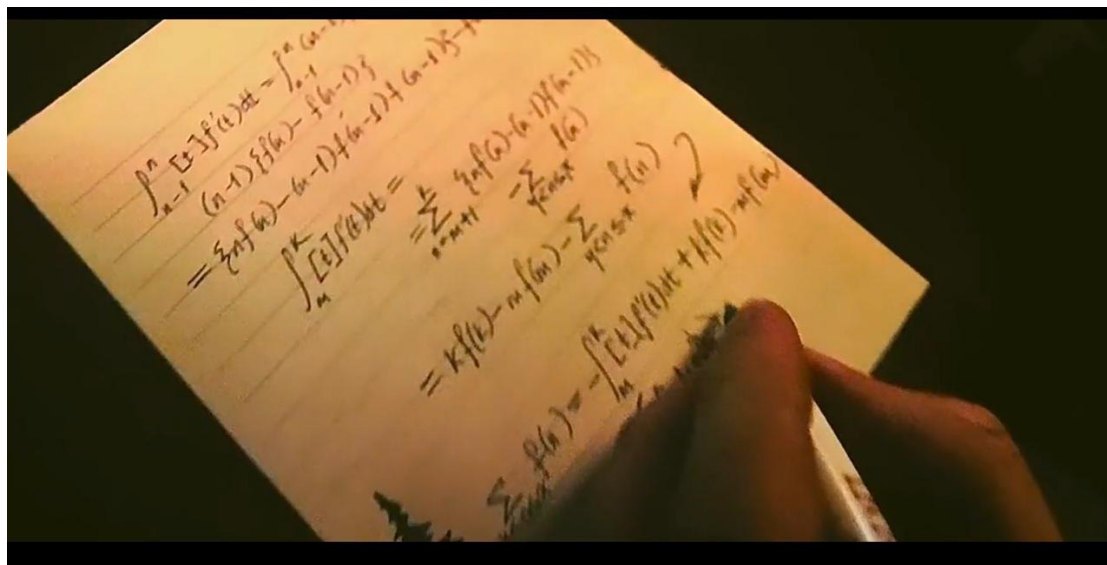 ∫_{n-1}^{n} [t]f'(t)dt = ∫_{n-1}^{n} (n-1)
(n-1){f(n) - f(n-1)}
= {nf(n) - (n-1)f(n-1)} - f
∫_{m}^{k} [t]f'(t)dt =
= ∑_{n=m+1}^{k} {nf(n) - (n-1)f(n-1)}
- ∑_{y<n≤x} f(n)
= kf(k) - mf(m) - ∑_{y<n≤x} f(n)
∑ f(n) = -∫_{m}^{k} [t]f'(t)dt + kf(k) - mf(m)